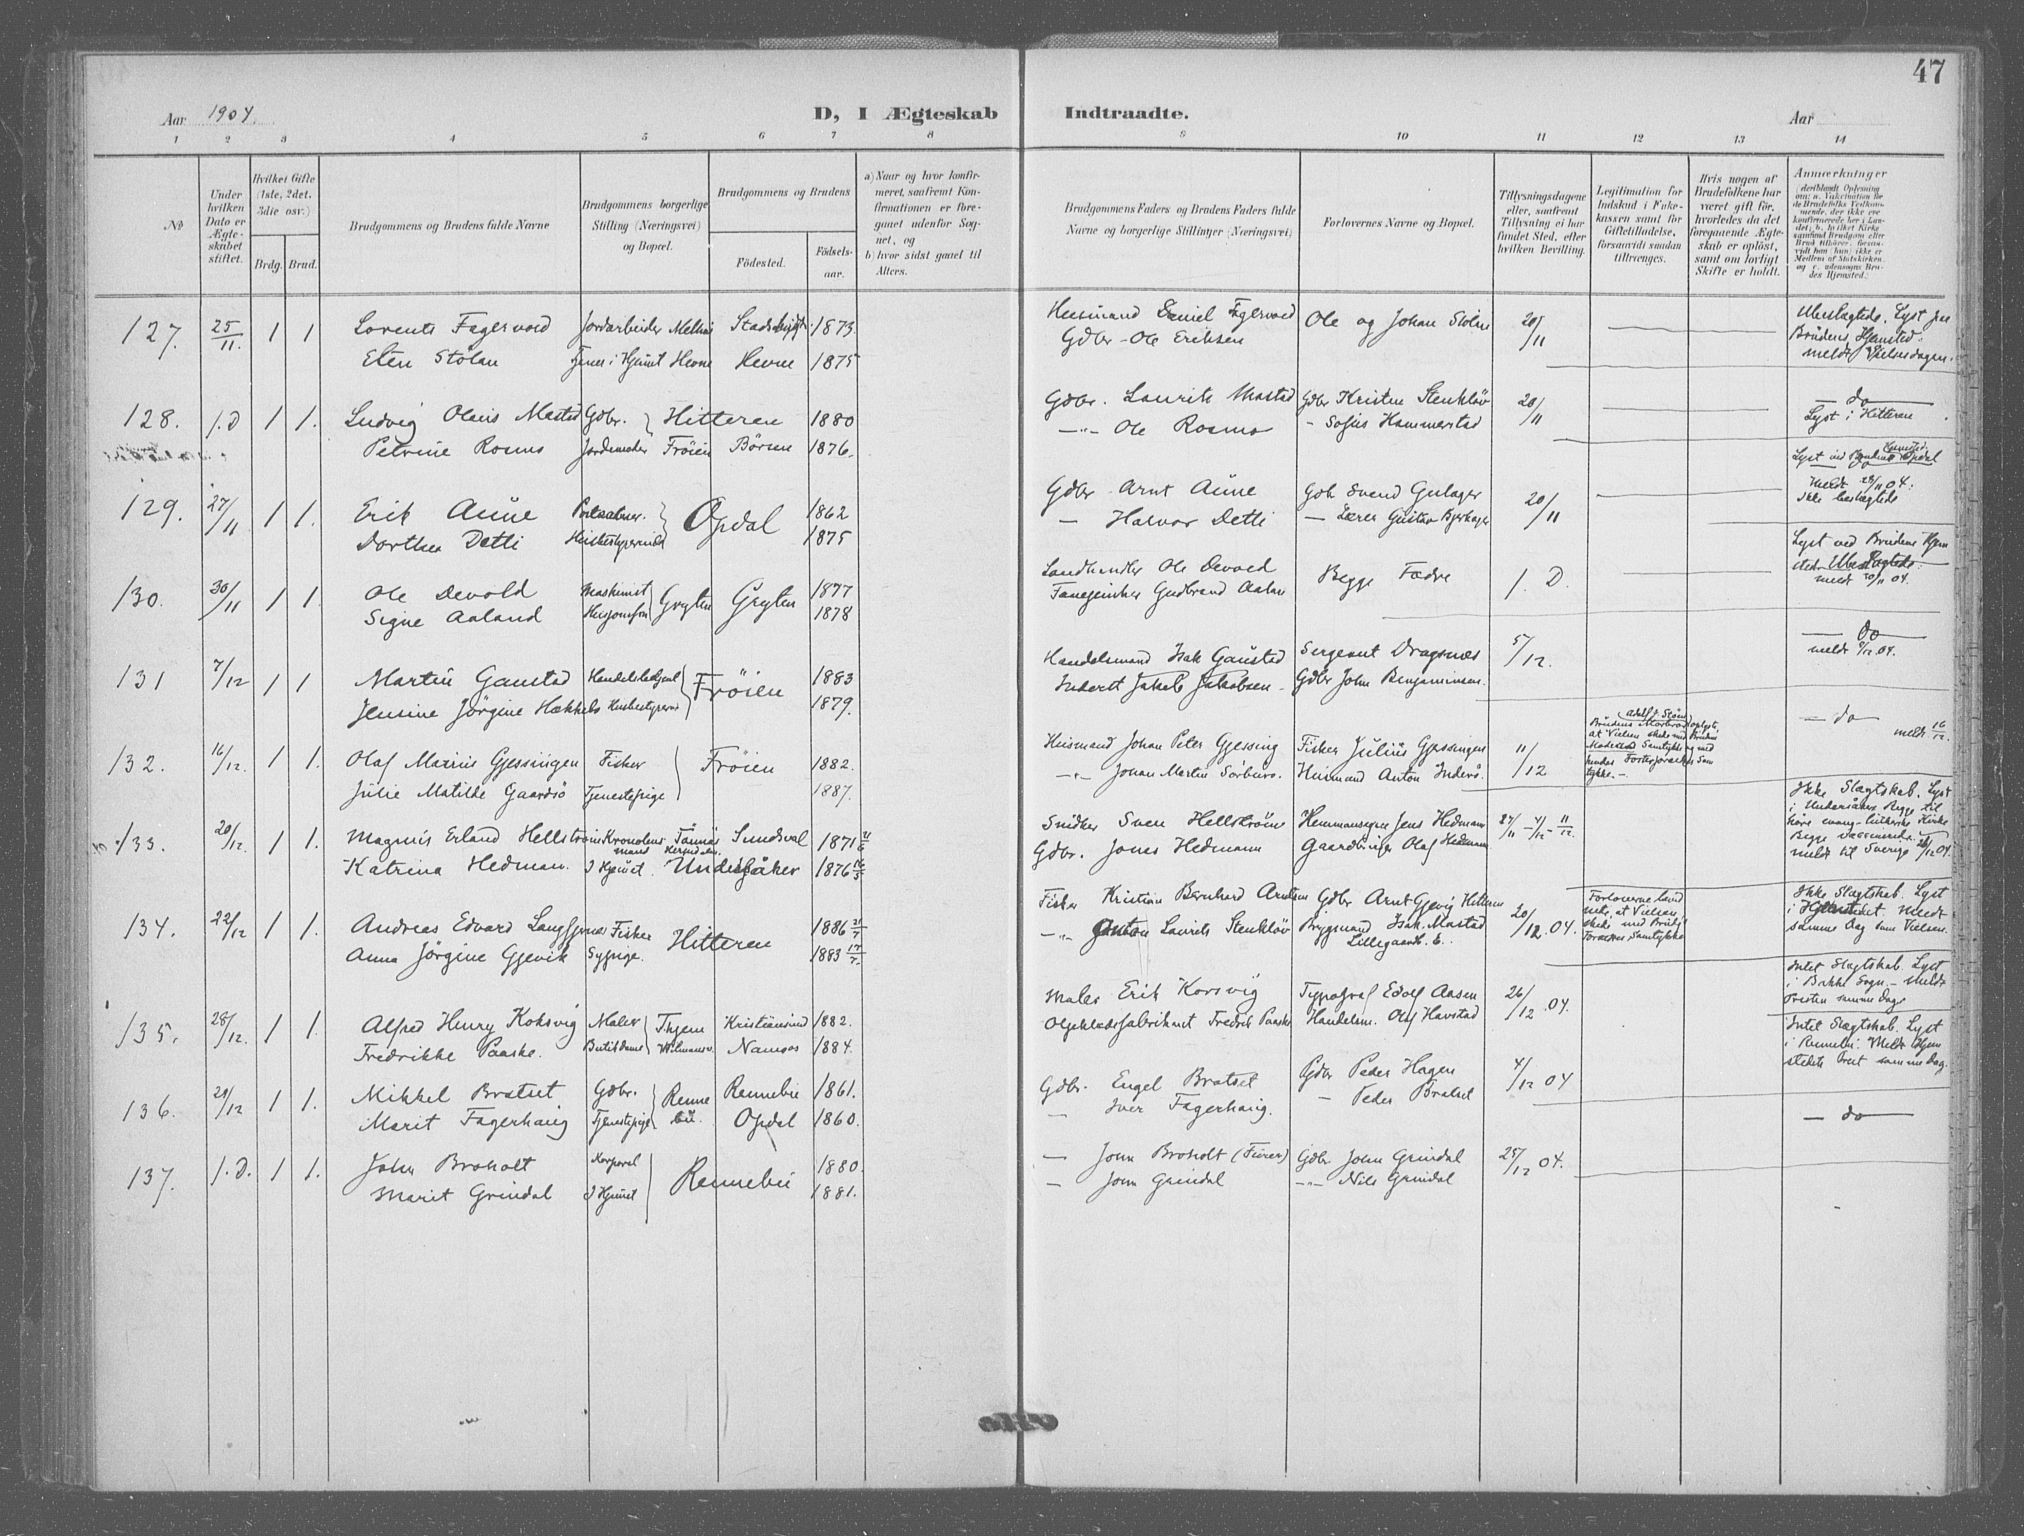 47
Aar 1904.
D, I Ægteskab Indtraadte.
Aar
1 2 3 4 5 6 7 8 9 10 11 12 13 14
№
Under hvilken Dato er Ægteskabet stiftet.
Hvilket Gifte (1ste, 2det. 3die osv.)
Brdg. Brud.
Brudgommens og Brudens fulde Navne
Brudgommens borgerlige Stilling (Næringsvei) og Bopæl.
Brudgommens og Brudens
Födested.
Födselsaar.
a) Naar og hvor konfirmeret, saafremt Konfirmationen er foregaaet udenfor Sognet, og
b) hvor sidst gaaet til Alters.
Brudgommens Faders og Brudens Faders fulde Navne og borgerlige Stillinger (Næringsvei)
Forlovernes Navne og Bopæl.
Tillysningsdagene eller, saafremt Tillysning ei har fundet Sted, efter hvilken Bevilling.
Legitimation for Indskud i Enkekassen samt for Giftetilladelse, forsaavidt saadan tiltrænges.
Hvis nogen af Brudefolkene har været gift før, hvorledes da det foregaaende Ægteskab er opløst, samt om lovligt Skifte er holdt.
Anmærkninger
127. 25/11. 1 1 Lorents Fagervold Jordarbeider Melhus 1873. Husmand Daniel Fagervold Ole og Johan Stölan 20/11
Elen Stölan Tjener i Hjemmet Hevne Hevne 1875 Gdbr. Ole Eriksen
Ubeslægtede. Lyst paa Brudens Hjemsted. meldt Vielsesdagen.
128. s. D 1 1. Ludvig Olaus Mastad Gdbr. Hitteren 1880 Gdbr. Laurits Mastad Gdbr Kristen Stenklöv 20/11
Petrine Rosmo Jordemoder Fröien Börsen 1876. —"— Ole Rosmo - Sofus Hammerstad
— do — Lyst i Hitteren
129. 27/11 1 1. Erik Aune Opdal 1862 Gdbr Arnt Aune Gdb. Svend Gulager 20/11
Dorthea Detli Husbestyrerinde 1875 — Halvor Detli — Lærer Gustav Bjerkager
Lyst ved Brudens Hjemsted Opdal
Meldt 28/11 04. Ikke beslægtede
130. 30/11 1 1. Ole Devold Maskinist Gryten Gryten 1877 Landhandler Ole Devold Begge Fædre s. D.
Signe Aaland Husjomfru 1878 Gudbrand Aaland
Lyst ved Brudens Hjemsted. Ubeslægtede. meldt 30/11 04.
131 7/12 1 1 Martin Gaustad Handelsbetjent Fröien 1883 Handelsmand Isak Gaustad Sergeant Dragsnes 5/12.
Jensine Jörgine Hekkelb Husbestyrer 1879. Inderst Jakob Jakobsen Gdbr John Benjaminsen.
— do — meldt 9/12.04.
132. 16/12. 1 1. Olaf Marius Gjessingen Fisker Fröien 1882. Husmand Johan Peter Gjessing Fisker Julius Gjessingen 11/12
Julie Matilde Gaardsö Tjenestepige 1887. —"— Johan Martin Sörburö. Husmand Anton Inderö.
— do meldt 16/12.
133. 20/12. 1 1 Magnus Erland Hellström Sundsval 1871 Snidker Sven Hellström Hemmansegare Jens Hedman 27/11 - 4/12 - 11/12
Katrina Hedman. I Hjemmet. Undersåker 1876 Gdbr. Jonas Hedmann Olaf Hedmann
Ikke Slægtskab. Lyst i Undersåker. Begge til höre evang-lutherske Kirke
meldt til Sverige 28/12 04.
134. 22/12 1 1. Andreas Edvard Langfjernes Fisker Hitteren 1886 Fisker Kristian Bernhard Arntsen Gdbr Arnt Gjevig Hitteren 20/12.04.
Anna Jörgine Gjevik Sypige. 1883 17/7. —"— Anton Laurits Stenklöv Bryggmand Isak Mastad Lillegaardb. 6.
Ikke Slægtskab. Lyst i Hjemmet. Meldt samme Dag som Vielsen.
135. 28/12. 1 1. Alfred Henry Korsvig Maler Kristiansund 1882. Maler Erik Korsvig Typograf Edolf Aasen 26/12 04.
Fredrikke Paaske. Butikdame Namsos 1884. Oljeklædefabrikant Fredrik Paaske Handelsm. Olaf Havstad
Intet Slægtskab. Lyst i Bakke Sogn. - Meldt Presten samme Dag
136. 29/12 1 1. Mikkel Bratset Gdbr. Rennebu Rennebu 1861. Gdbr. Engel Bratset Gdbr Peder Hagen 4/12 04
Marit Fagerhaug Tjenestepige Opdal 1860. — Iver Fagerhaug. — Peder Bratset
Intet Slægtskab. Lyst i Rennebu. Meldt Hjemstedets Prest samme Dag.
137. s. D. 1 1. John Broholt Korporal Rennebu 1880. — John Broholt (Furer) Gdbr John Grindal 25/12 04.
Marit Grindal I Hjemmet 1881. — John Grindal —"— Nils Grindal
— do —